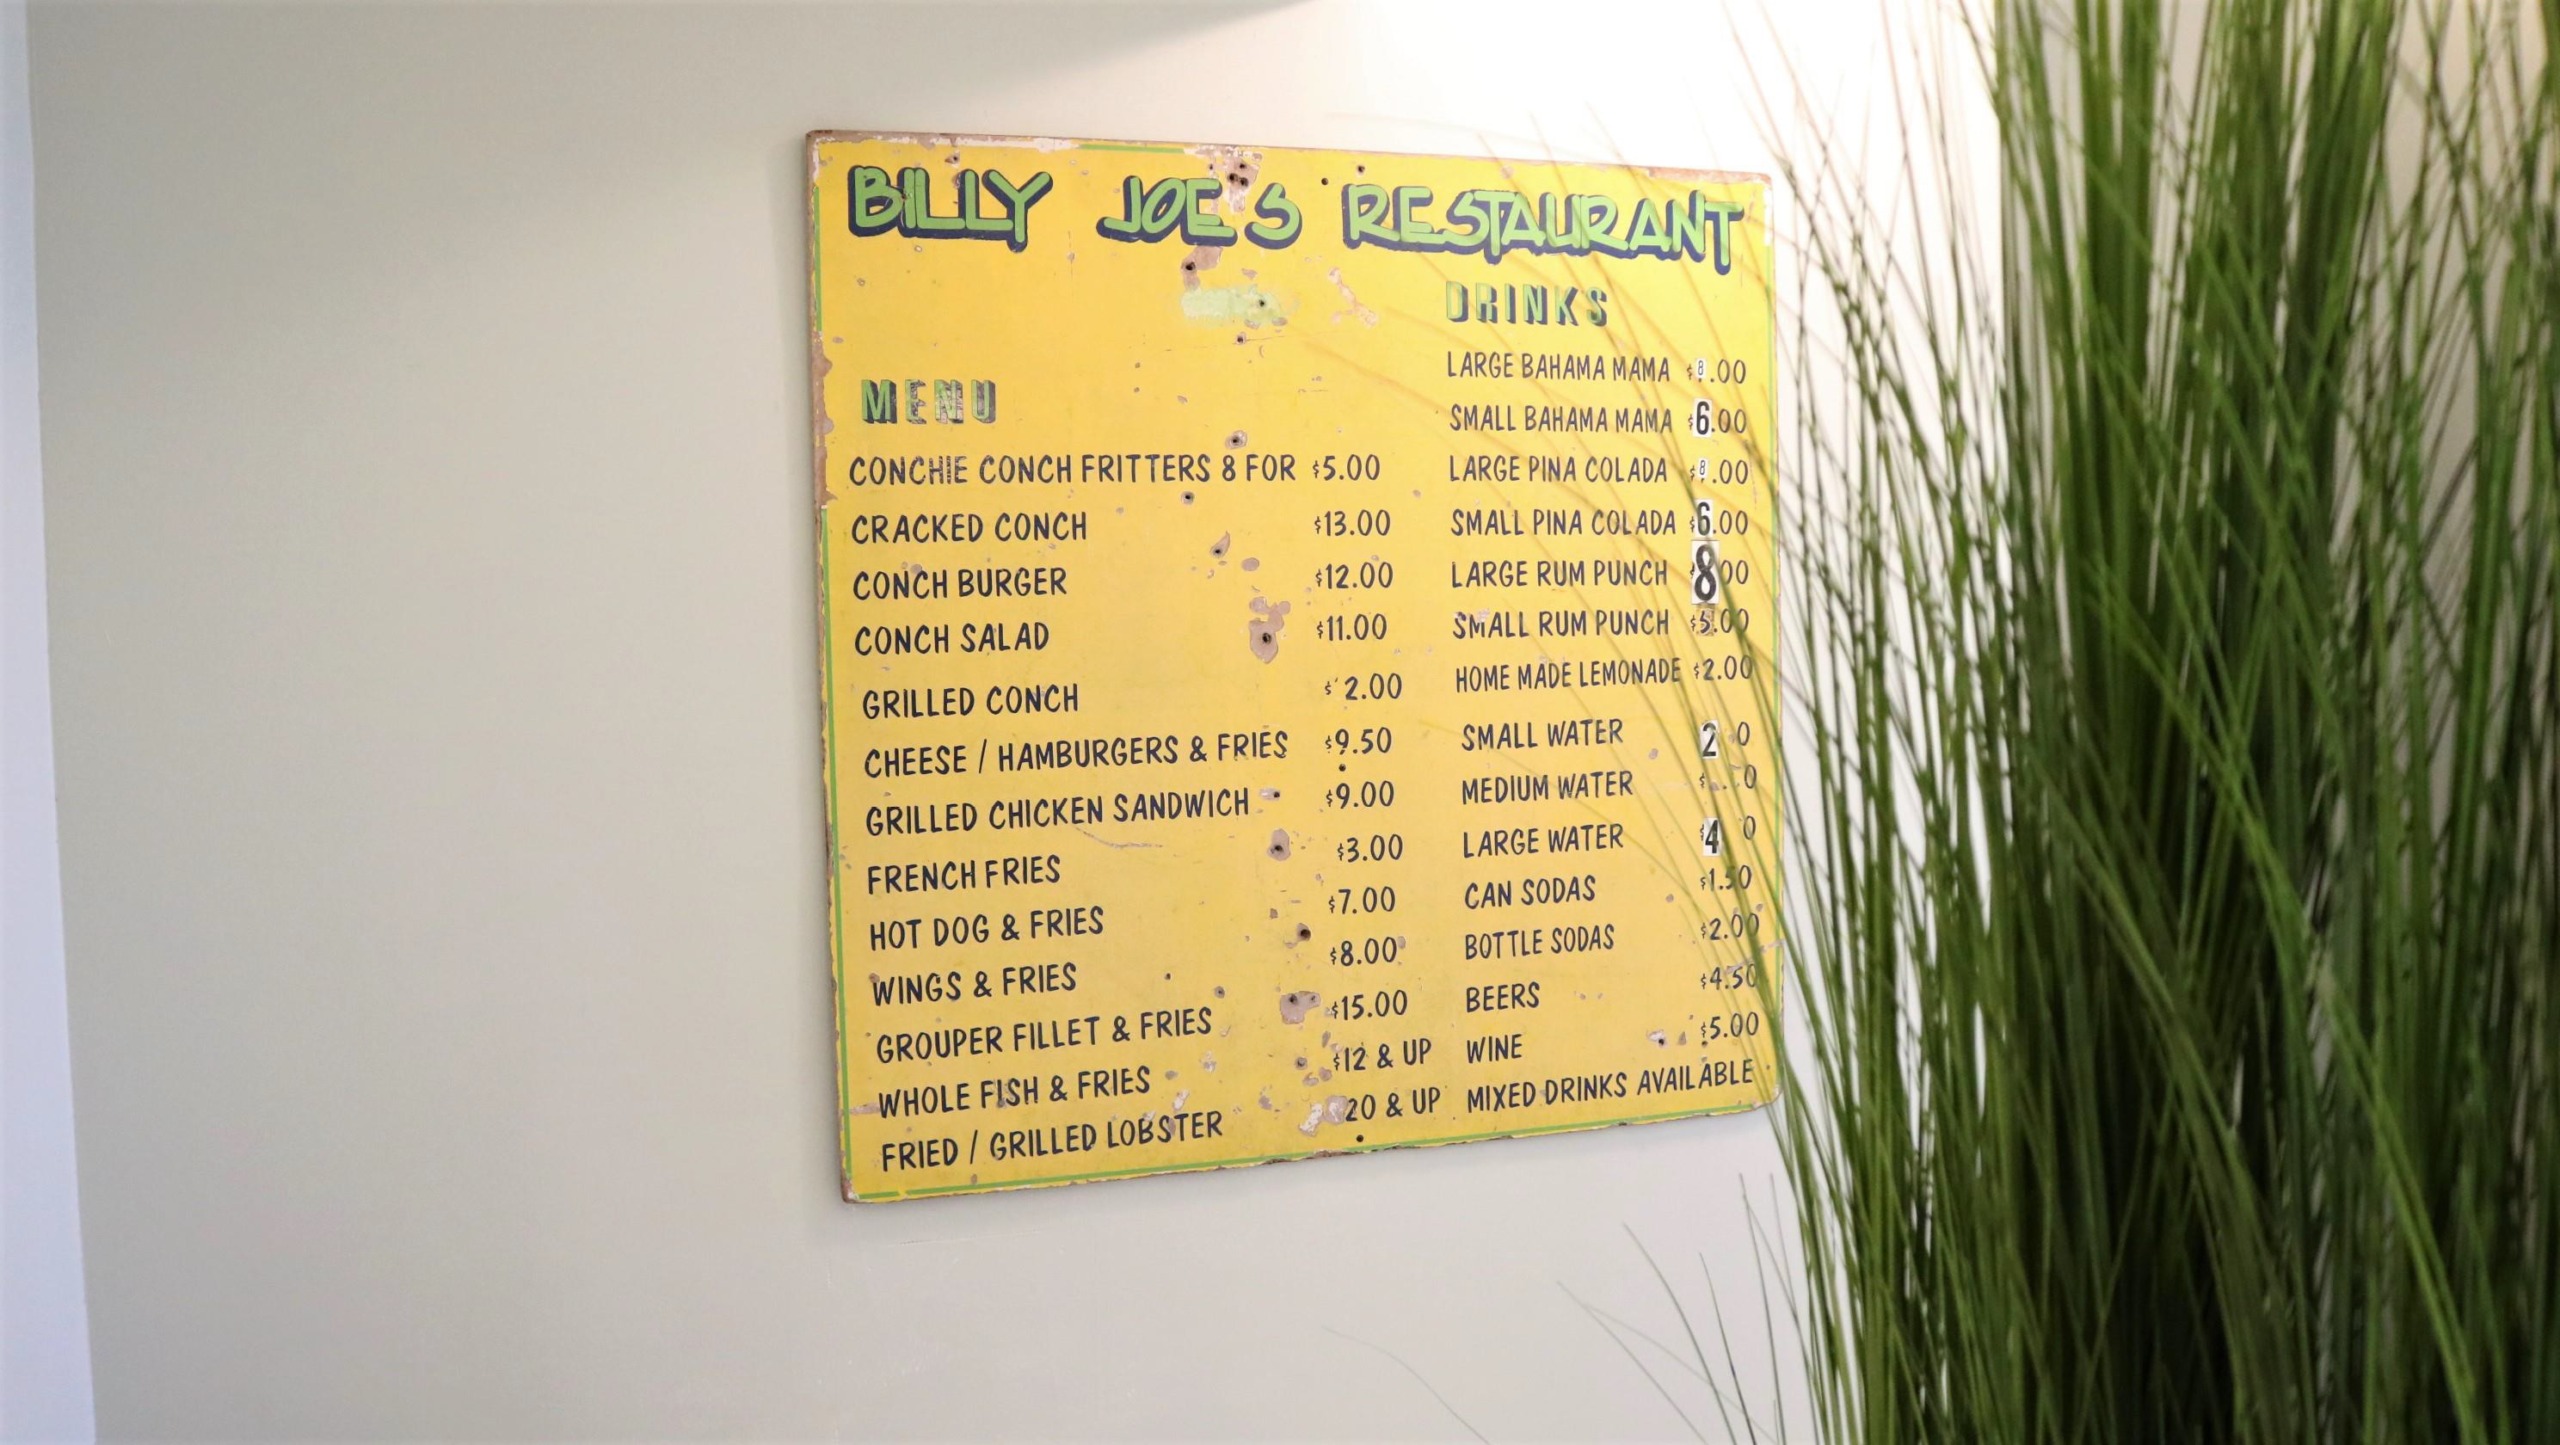 BILLY JOE'S RESTAURANT
MENU
CONCHIE CONCH FRITTERS 8 FOR $5.00
CRACKED CONCH $13.00
CONCH BURGER $12.00
CONCH SALAD $11.00
GRILLED CONCH $ 2.00
CHEESE / HAMBURGERS & FRIES $9.50
GRILLED CHICKEN SANDWICH $9.00
FRENCH FRIES $3.00
HOT DOG & FRIES $7.00
WINGS & FRIES $8.00
GROUPER FILLET & FRIES $15.00
WHOLE FISH & FRIES $12 & UP
FRIED / GRILLED LOBSTER 20 & UP
DRINKS
LARGE BAHAMA MAMA $8.00
SMALL BAHAMA MAMA $6.00
LARGE PINA COLADA $8.00
SMALL PINA COLADA $6.00
LARGE RUM PUNCH 8 00
SMALL RUM PUNCH $5.00
HOME MADE LEMONADE $2.00
SMALL WATER 2 0
MEDIUM WATER
LARGE WATER $4 0
CAN SODAS $1.50
BOTTLE SODAS $2.00
BEERS $4.50
WINE $5.00
MIXED DRINKS AVAILABLE